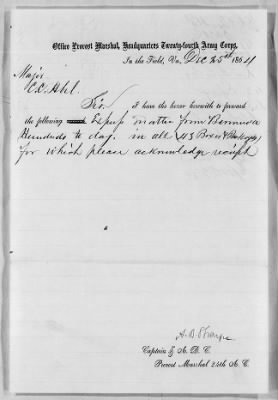 Office Provost Marshal, Headquarters Twenty-fourth Army Corps,
In the Field, Va., Dec 25th 1864
Major
Sir. I have the honor herewith to forward
the following matter from Bermuda
Hundreds to day. in all (43 Boxes & Packages)
for which please acknowledge receipt
Captain & A. D. C.
Provost Marshal 24th A. C.